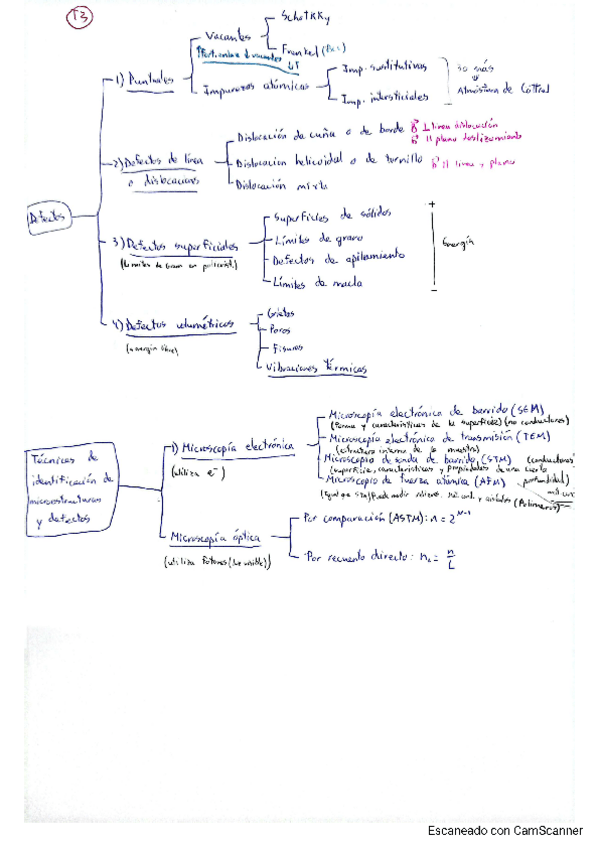 T3
Defectos
1) Puntuales
Vacantes
Schottky
Frenkel
Impurezas atómicas
Imp. sustitutivas
Imp. intersticiales
so más
Atmósfera de Cottrell
2) Defectos de línea
o dislocaciones
Dislocación de cuña o de borde
b ⊥ linea dislocación
b II plano deslizamiento
Dislocacion helicoidal o de tornillo
b II linea y plano
Dislocación mixta
3) Defectos superficiales
(Límites de grano en policrist.)
Superficies de sólidos
Límites de grano
Defectos de apilamiento
Límites de macla
+
Energía
-
4) Defectos volumétricos
(energia libre)
Grietas
Poros
Fisuras
Vibraciones térmicas
Técnicas de
identificación de
microestructuras
y defectos
1) Microscopía electrónica
(utiliza e⁻)
Microscopía electrónica de barrido (SEM)
(Forma y características de la superficie) (no conductores)
Microscopía electrónica de transmisión (TEM)
(estructura interna de la muestra)
Microscopio de sonda de barrido (STM) (conductores)
(superficie, características y propiedades de una cierta profundidad)
Microscopio de fuerza atómica (AFM)
Microscopía óptica
(utiliza fotones (luz visible))
Por comparación (ASTM): n = 2^N-1
Por recuento directo: n_L = n/L
Escaneado con CamScanner